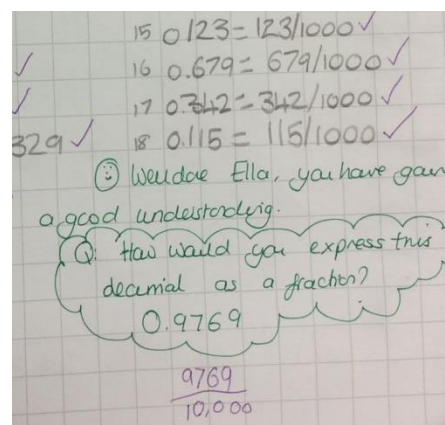 15 0.123 = 123/1000 ✓
✓ 16 0.679 = 679/1000 ✓
✓ 17 0.342 = 342/1000 ✓
329 ✓ 18 0.115 = 115/1000 ✓
☺ Well done Ella, you have
a good understanding.
Q: How would you express this
decimal as a fraction?
0.9769
9769
10,000